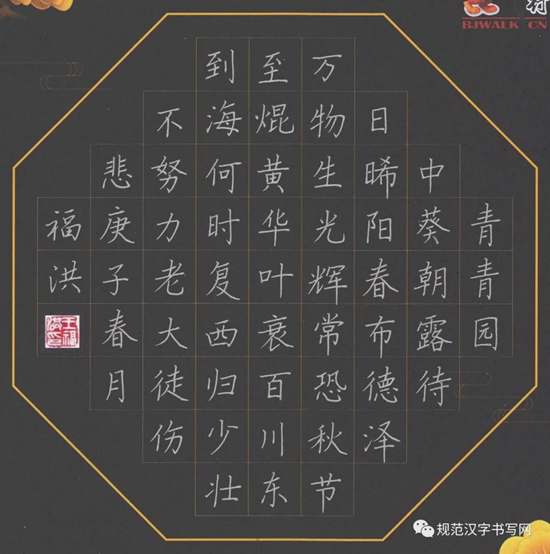 青青园
中葵朝露待
日晞阳春布德泽
万物生光辉常恐秋节
至焜黄华叶衰百川东
到海何时复西归少壮
不努力老大徒伤
悲庚子春月
福洪
王福洪印
BJWALK CN
规范汉字书写网